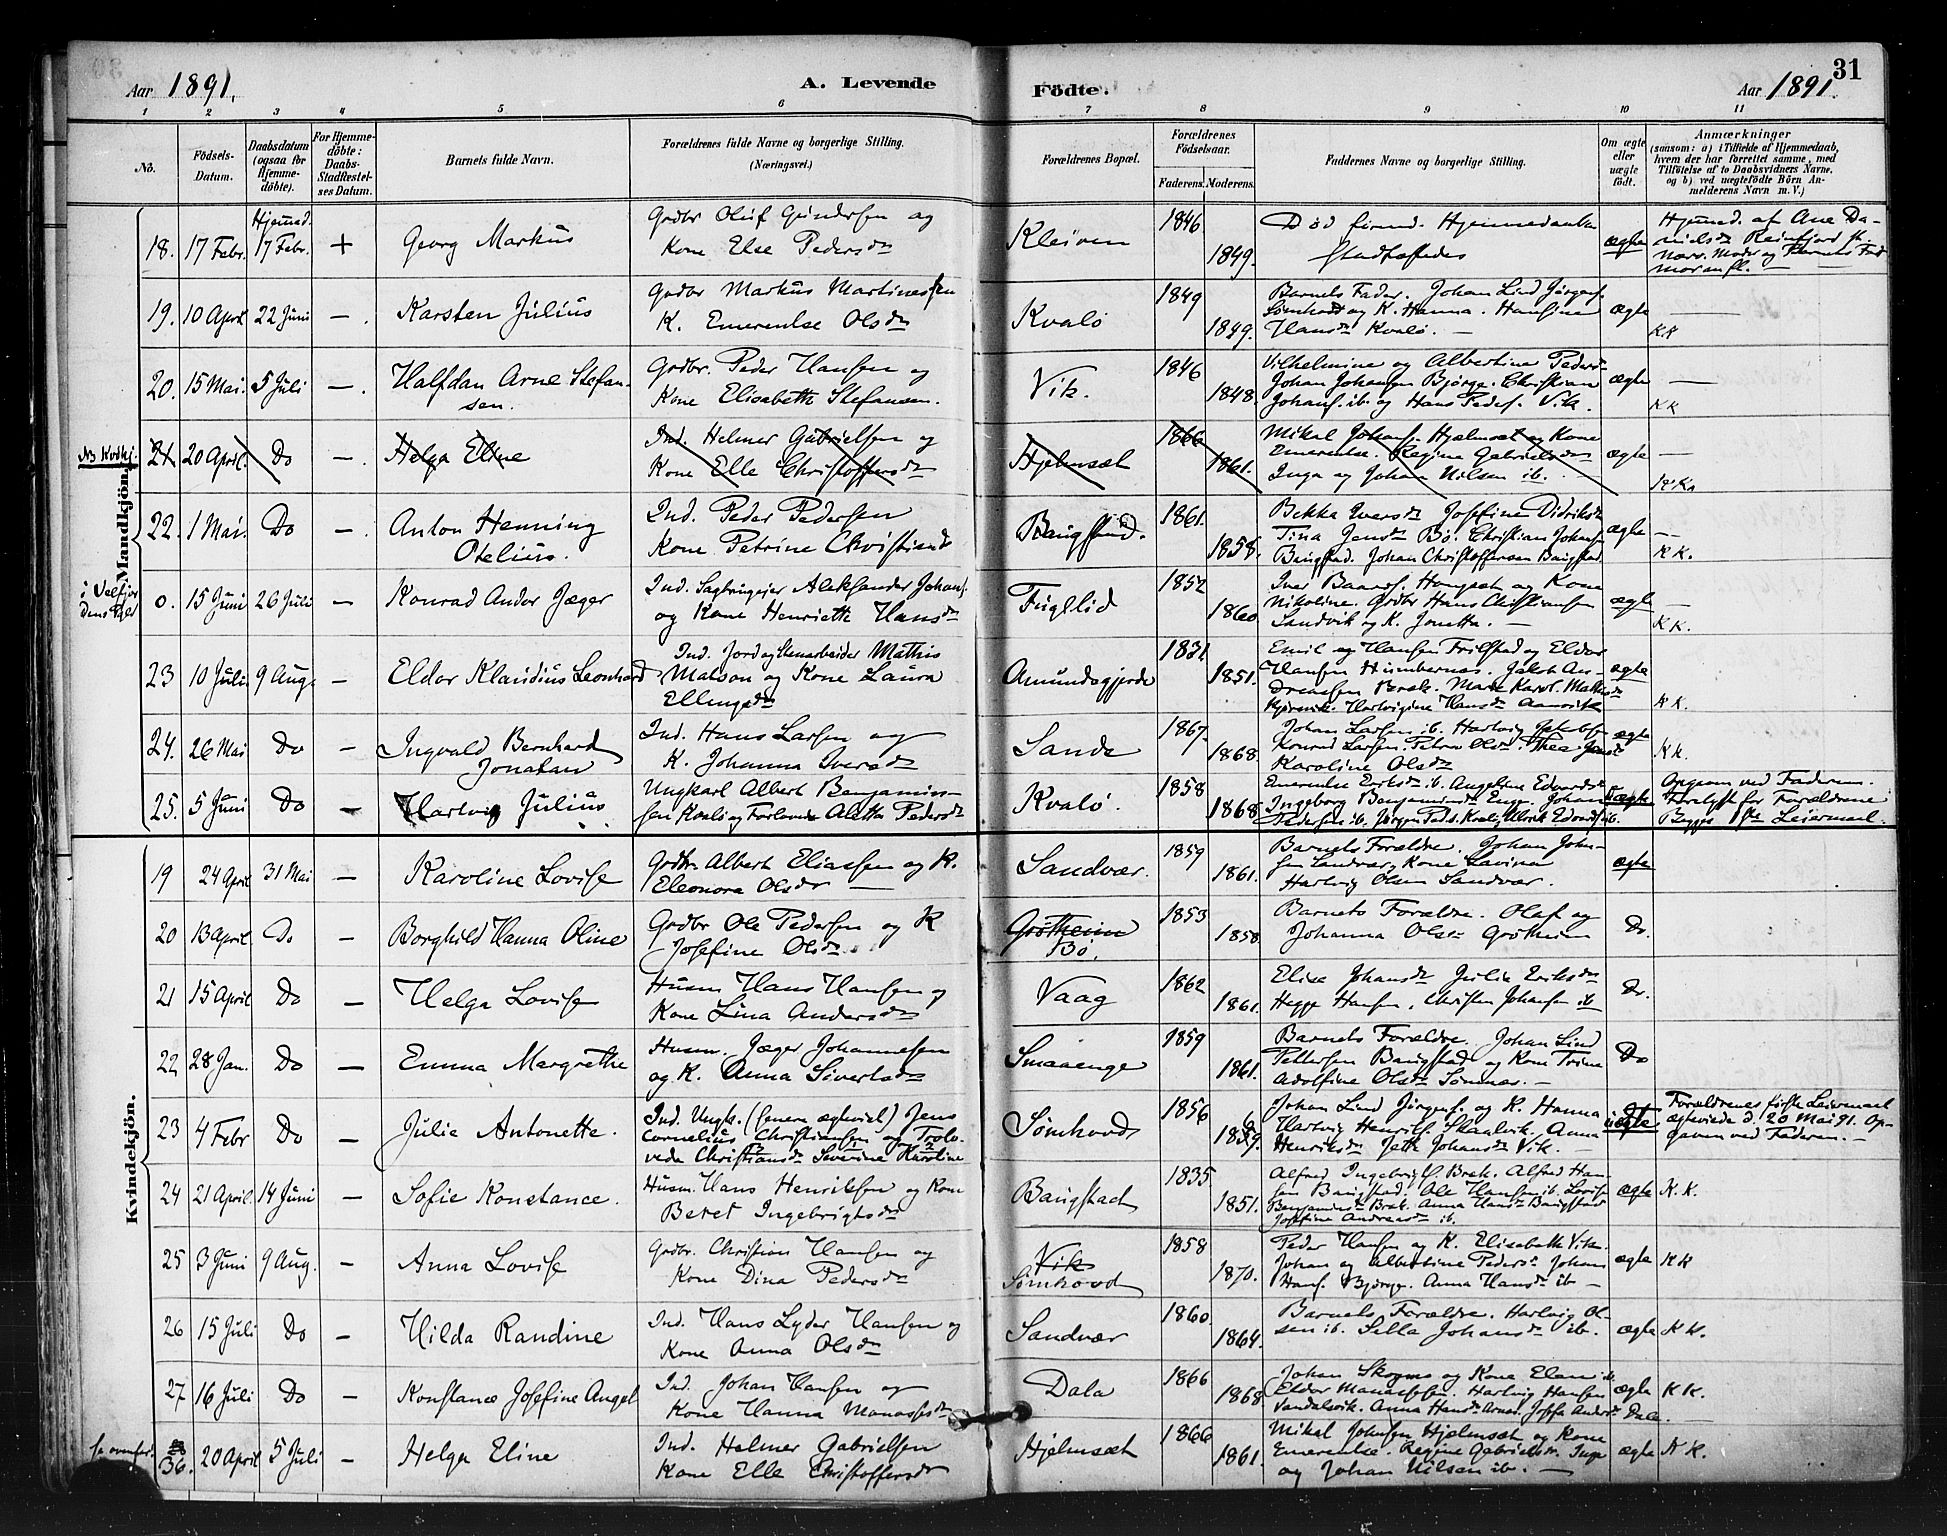 31
Aar 1891.
A. Levende Födte.
Aar 1891.
1 2 3 4 5 6 7 8 9 10 11
No.
Födsels-Datum.
Daabsdatum (ogsaa for Hjemmedöbte).
For Hjemmedöbte: Daabs-Stadfestelses Datum.
Barnets fulde Navn.
Forældrenes fulde Navne og borgerlige Stilling. (Næringsvei.)
Forældrenes Bopæl.
Forældrenes Födselsaar.
Faderens. Moderens.
Faddernes Navne og borgerlige Stilling.
Om ægte eller uægte födt.
Anmærkninger
(saasom: a) i Tilfælde af Hjemmedaab, hvem der har forrettet samme, med Tilföielse af to Daabsvidners Navne, og b) ved uægtefödte Börn Anmelderens Navn m. V.)
Mandkjön.
18. 17 Febr. Hjemmed. 17 Febr. + Georg Markus
Grdbr Oluf Gundersen og
Kone Else Pedersdr
Kleiven 1846 1849.
Død førend Hjemmedaaben
stadfæstedes
ægte
Hjemmed. af Ane Danielsdr Reinfjord
19. 10 April 22 Juni — Karsten Julius
Grdbr Markus Martinessen
K. Emerentse Olsdr
Kvalø 1849 1849.
Barnets Fader. Johan Lind Jørgens.
Sømhovd og K. Hanna. Hansine
Hansdr Kvalø. —
ægte — KK
20. 15 Mai. 5 Juli — Halfdan Arne Stefansen.
Grdbr. Peder Hansen og
Kone Elisabeth Stefansen.
Vik. 1846 1848.
Vilhelmine og Albertine Pedersdr
Johan Johansen Bjørge. Christian
Johans. ib. og Hans Peders. Vik.
ægte — KK
No Kvdkj.
21. 20 April. Do — Helga Eline
Ind. Helmer Gabrielsen og
Kone Elle Christoffersdr
Hjelmsæt 1866 1861.
Mikal Johans. Hjelmsæt og Kone
Emerentse. Regine Gabrielsdr
Inga og Johan Nilsen ib.
ægte — KK.
22. 1 Mai. Do — Anton Henning
Otelius.
Ind. Peder Pedersen
Kone Petrine Christiansdr
Baugstad. 1861. 1858.
Bekka Iversdr Josefine Didriksdr
Tina Jensdr Bø. Christian Johans.
Baugstad. Johan Christoffersen Baugstad
ægte — KK.
i Velfjordens Regist
0. 15 Juni 26 Juli — Konrad Andor Jæger
Ind. Sagbrugejer Aleksander Johans.
og Kone Henriette Hansdr
Fugllid 1852 1860
Nikoline. Grdbr Hans Christiansen
Sandvik og K. Jonetta. —
ægte — KK.
23 10 Juli 9 Aug. — Eldor Klaudius Leonhard
Ind. Jord og Stenarbeider Mathis
Matson og Kone Laura
Ellingsdr
Amundsgjerde 1831. 1851.
ægte KK.
24. 26 Mai Do — Ingvald Bernhard
Jonatan
Ind. Hans Larsen og
K. Johanna Iversdr
Sande 1867. 1868.
Johan Larsen ib. Hartvig
Konrad Larsen. Petra Olsdr. Thea Jensdr
Karoline Olsdr
ægte KK.
25. 5 Juni Do — Hartvig Julius
Ungkarl Albert Benjaminsen Kvalø og Forlovede Aletta Pedersdr
Kvalø. 1858 1868.
Emerentse Eriksdr ib. Angeline Edvardsdr
Ingeborg Benjaminsdr Enge. Johan
Pedersen ib.
uægte
Opgivn ved Faderen.
Forelyst for Forældrene
Begges 1ste Leiermaal.
Kvindekjön.
19 24 April 31 Mai — Karoline Lovise
Grdbr. Albert Eliassen og K.
Eleonora Olsdr —
Sandvær. 1859 1861.
Barnets Forældre. Johan Johnsen Sandvær og Kone Lavina
Hartvig Olsen Sandvær.
ægte
20 13 April. Do — Borghild Hanna Oline
Grdbr Ole Pedersen og K
Josefine Olsdr.
Grøtheim
Bø. 1853 1858
Barnets Forældre. Olaf og
Johanna Olsdr Grøtheim
Do.
21 15 April Do — Helga Lovise
Husm Hans Hansen og
Kone Lina Andersdr
Vaag 1862 1861.
Elisa Johansdr Julie Eriksdr
Hegge Hansen. Christen Johansen ib
Do.
22 28 Jan. Do — Emma Margrethe
Husm. Jæger Johannesen
og K. Anna Sivertsdr
Smaaenge 1859 1861.
Barnets Forældre. Johan Lind
Pettersen Baugstad og Kone Trine
Adolfine Olsdr Sømnes. —
Do
23 4 Febr Do — Julie Antonette.
Ind. Ungk. (senere ægteviet) Jens
Cornelius Christiansen og Trolovede Christiansdr Severine Karoline
Sømhovd 1856 1859.
Johan Lind Jørgens. og K. Hanna
Hartvig Henriks. Skaalvik. Anna
Henriksdr Jette Johansdr Vik. —
uægte
Forældrenes første Leiermaal
ægteviede d. 20 Mai 91. Opgaven ved Faderen. —
24 21 April. 14 Juni — Sofie Konstance.
Husm. Hans Henriksen og Kone
Beret Ingebrigtsdr
Baugstad 1835 1851.
Alfred Ingebrigts. Brek. Alfred Hansen Baugstad. Ole Hansen ib. Lovise
Benjaminsdr Brek. Anna Hansdr Baugstad
Josefine Andreasdr ib.
ægte K.K.
25 3 Juni 9 Aug. — Anna Lovise
Grdbr. Christian Hansen og
Kone Dina Pedersdr
Vik
Sømhovd 1858 1870.
Peder Hansen og K. Elisabeth Vik.
Johan og Albertine Pedersdr Johan
Hans. Bjørge. Anna Hansdr ib —
ægte KK
26 15 Juli Do — Hilda Randine
Ind. Hans Lyder Hansen og
Kone Anna Olsdr
Sandvær 1860. 1864.
Barnets Forældre. Hartvig Olsen ib. Silla Johansdr ib.
ægte KK.
27 16 Juli Do — Konstance Josefine Angel
Ind. Johan Hansen og
Kone Hanna Manassesdr
Dala 1866 1868
Johan Skogmo og Kone Elen ib.
Eldor Manassesen. Hartvig Hansen
Sandalsvik. Anna Hansdr
ægte KK.
se ovenfor.
36. 20 April 5 Juli — Helga Eline
Ind. Helmer Gabrielsen
Kone Elle Christoffersdr
Hjelmsæt 1866 1861.
Mikal Johnsen Hjelmsæt og Kone
Emerentse. Regine Gabrielsdr. Inga
og Johan Nilsen ib. —
ægte KK.